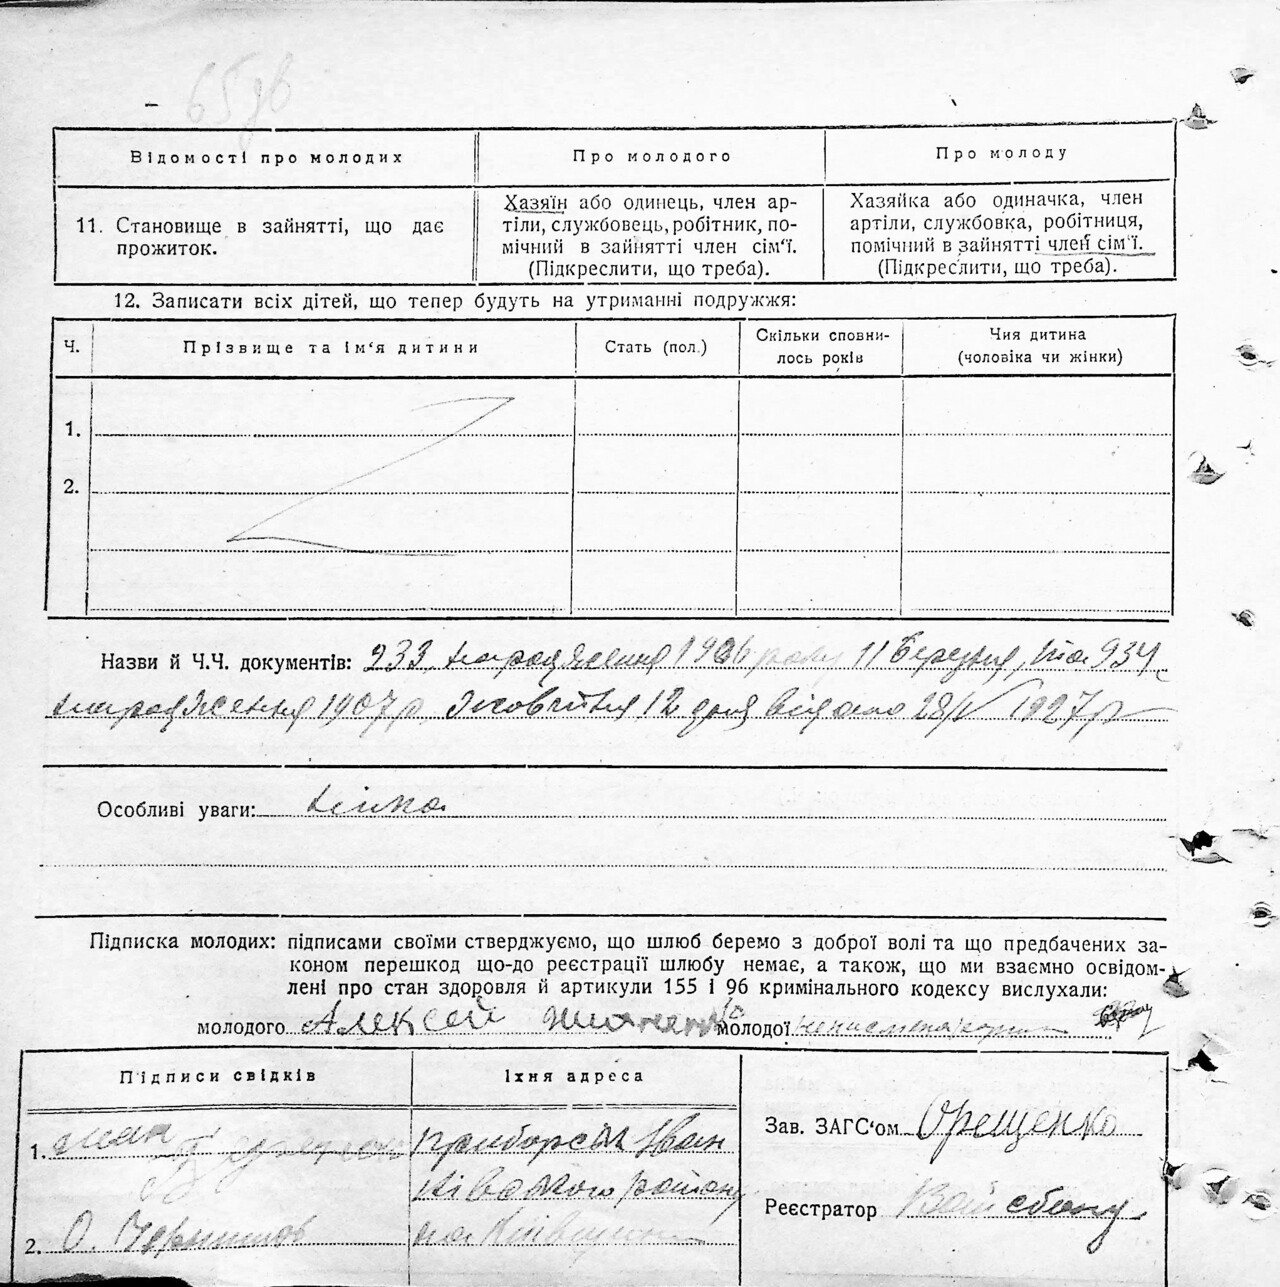 Відомості про молодих
Про молодого
Про молоду
11. Становище в зайнятті, що дає
прожиток.
Хазяїн або одинець, член ар-
тіли, службовець, робітник, по-
мічний в зайнятті член сім'ї.
(Підкреслити, що треба).
Хазяйка або одиначка, член
артіли, службовка, робітниця,
помічний в зайнятті член сім'ї.
(Підкреслити, що треба).
12. Записати всіх дітей, що тепер будуть на утриманні подружжя:
Ч.
Прізвище та ім'я дитини
Стать (пол.)
Скільки сповни-
лось років
Чия дитина
(чоловіка чи жінки)
1.
2.
Назви й Ч.Ч. документів: 233 народження 1906 року 11 березня, та 934
народження 1907 р. Жовтня 12 дня видано 28/V 1927 р
Особливі уваги: нима
Підписка молодих: підписами своїми стверджуємо, що шлюб беремо з доброї волі та що предбачених за-
коном перешкод що-до реєстрації шлюбу немає, а також, що ми взаємно освідом-
лені про стан здоровля й артикули 155 і 96 кримінального кодексу вислухали:
молодого Алексей молодої
Підписи свідків
Їхня адреса
1. Іван
району
2. О.
на Київщині
Зав. ЗАГС'ом Орещенко
Реєстратор